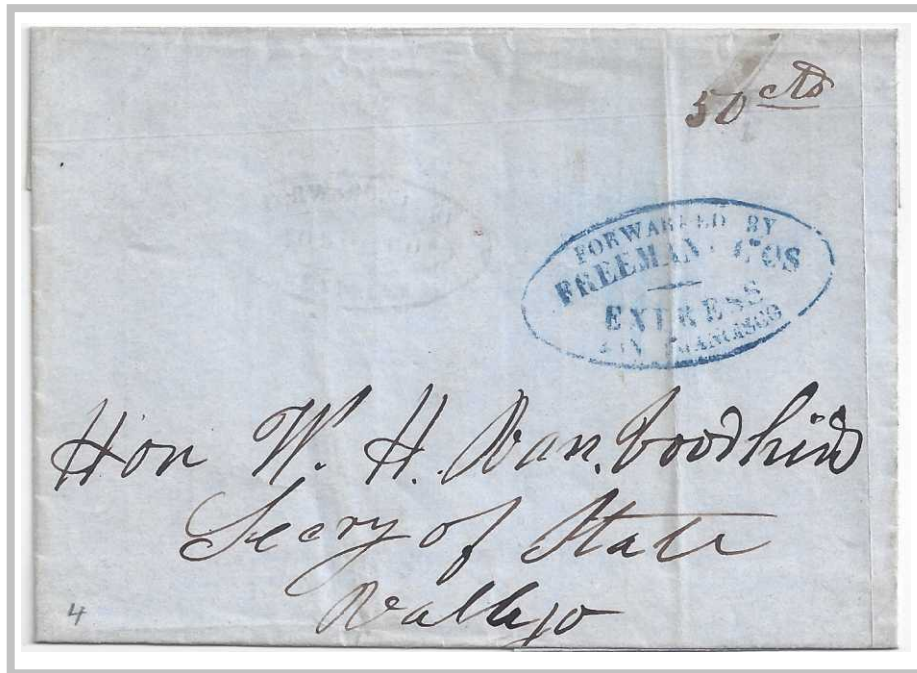 50 cts
FORWARDED BY
FREEMAN & COS
EXPRESS
SAN FRANCISCO
Hon W. H. Van.
Secry of State
Vallejo
4